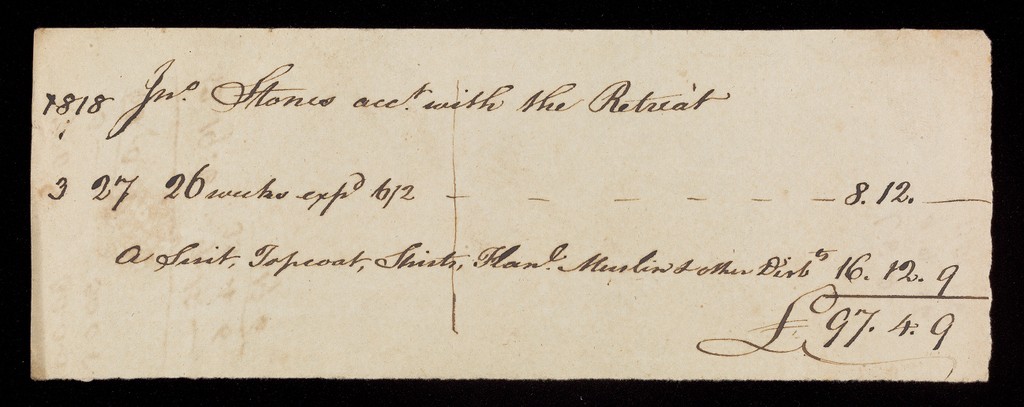 1818 Jno. Stones acct. with the Retreat
3 27 26 weeks expd 62/ — — — — — — 8.12. —
A Suit, Topcoat, Shirts, Flanl. Muslin & other Disbs 16.12.9
£97.4.9